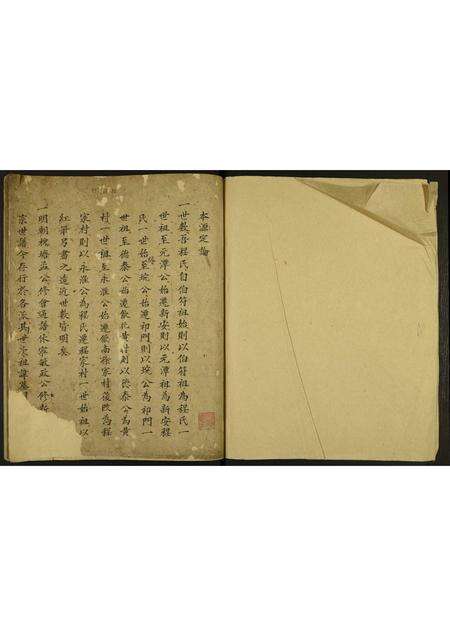 本源定論
一世數吾程氏自伯符祖始則以伯符祖為程氏一
世祖至元潭公始遷新安則以元潭祖為新安程
氏一世始至公始遷祁門則以公為祁門一
世祖至德泰公始遷歙北黃村則以德泰公為黃
村一世祖至永淮公始遷歙南徐家村後改為程
家村則以永淮公為程氏遷程家村一世始祖以
紅筆另書之遠近世數皆明矣
一明朝槐塘孟公修會通譜休寧敏政公修新
宗世譜今存行各派其世系祖諱墓